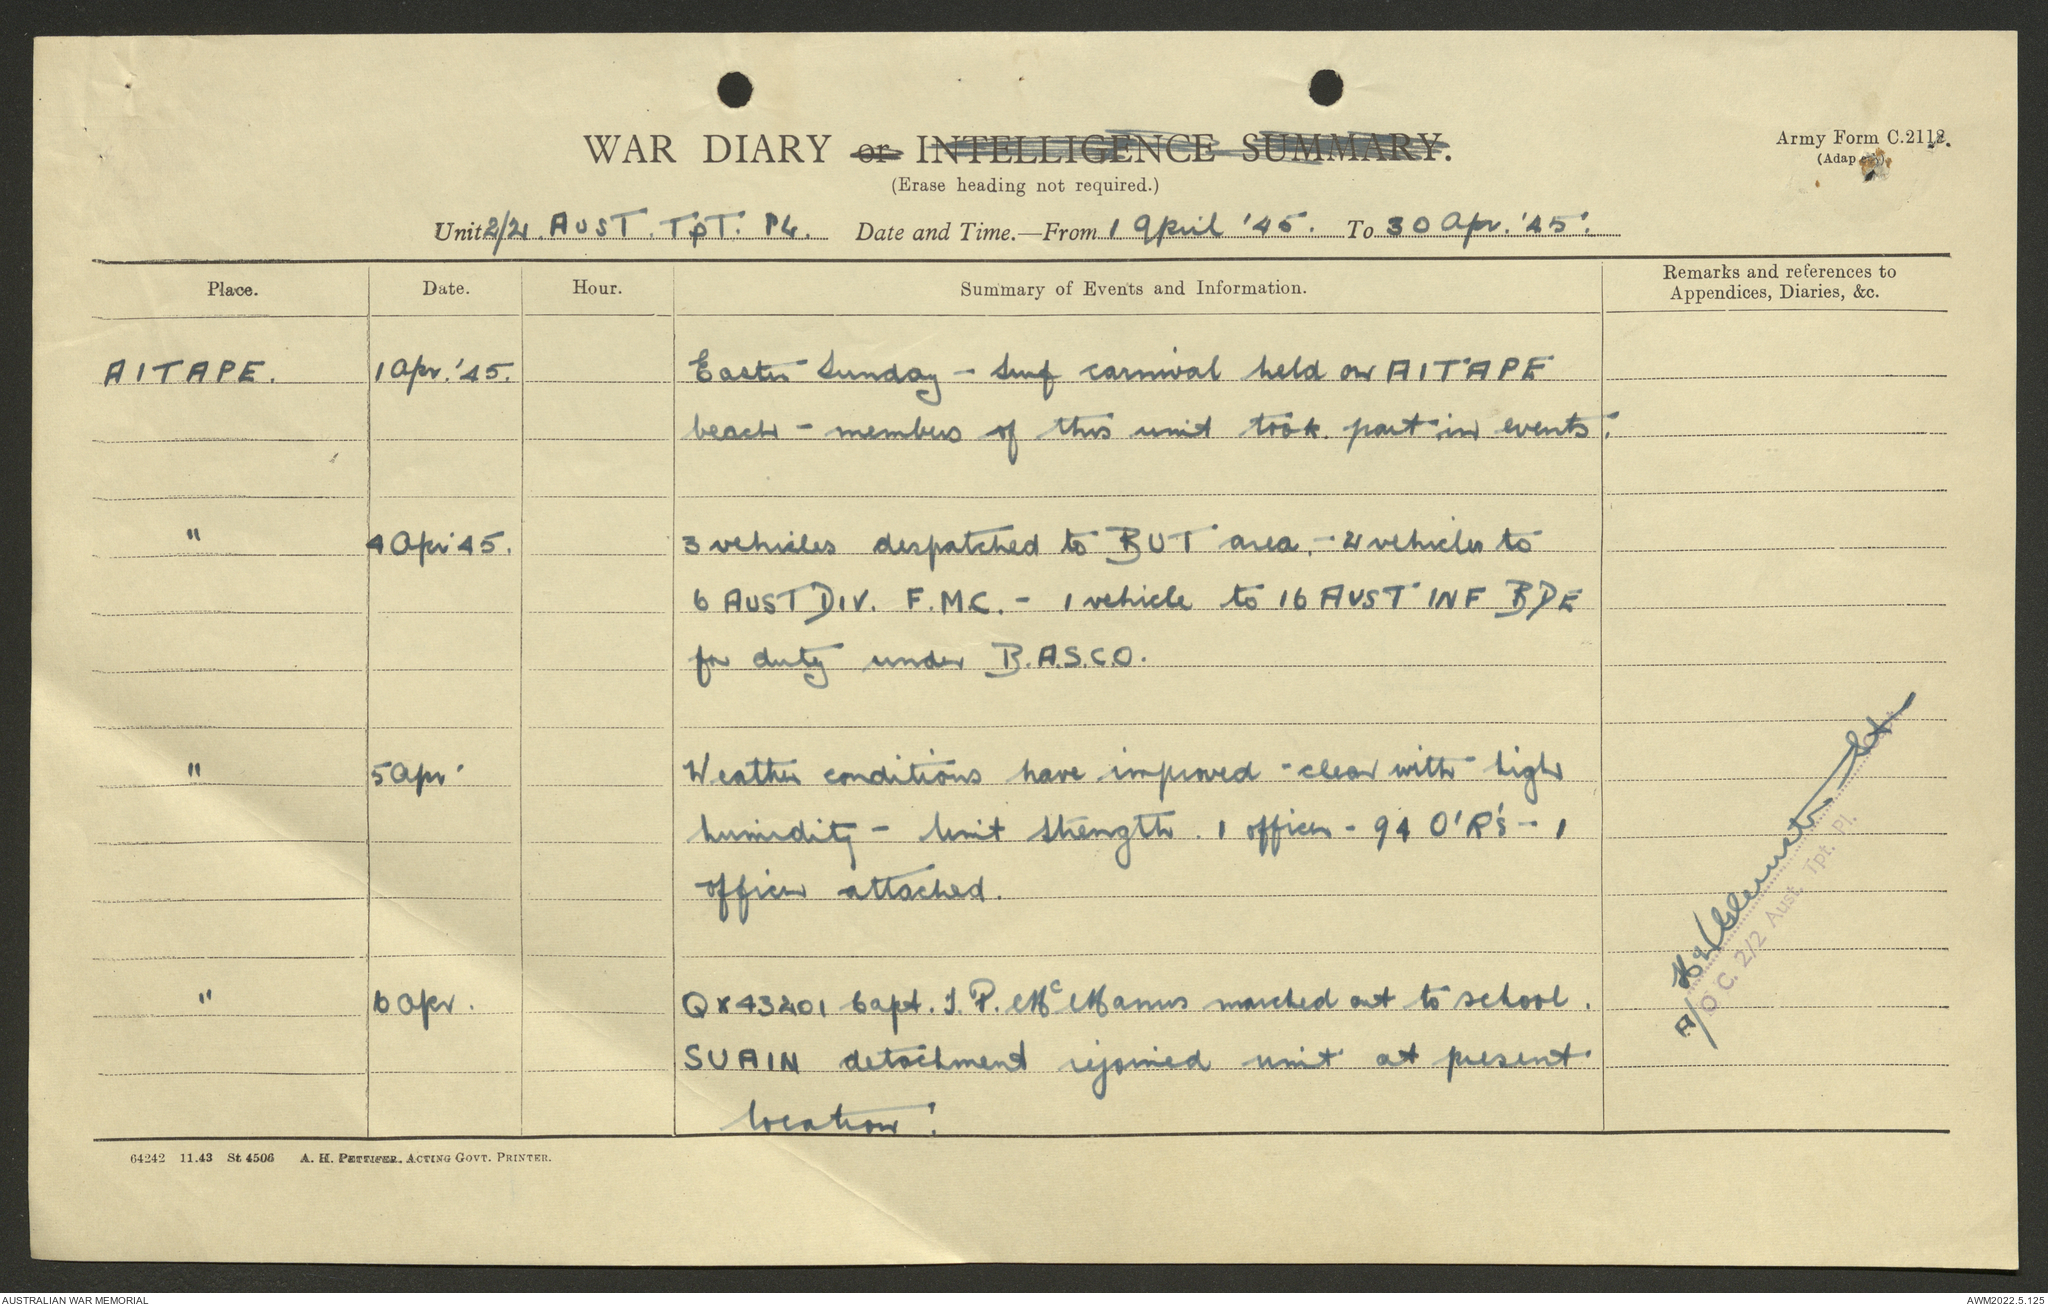 WAR DIARY or INTELLIGENCE SUMMARY.
Army Form C.2118.
(Erase heading not required.)
Unit 2/2 AUST. TPT. PL. Date and Time.—From 1 April '45. To 30 Apr. '45.
Place. Date. Hour. Summary of Events and Information. Remarks and references to Appendices, Diaries, &c.
AITAPE. 1 Apr. '45. Easter Sunday - Surf carnival held on AITAPE
beach - members of this unit took part in events.
" 4 Apr '45. 3 vehicles despatched to BUT area. - 2 vehicles to
6 AUST DIV. F.M.C. - 1 vehicle to 16 AUST INF BDE
for duty under B.A.S.C.O.
" 5 Apr Weather conditions have improved - clear with high
humidity - Unit strength. 1 officer - 94 O'R's - 1
officer attached.
" 6 Apr. QX43201 Capt. J. P. McManus marched out to school.
SUAIN detachment rejoined unit at present
location.
Lt
A/ O.C. 2/2 Aust. Tpt. Pl.
64242 11.43 St 4506 A. H. PETTIFER. ACTING GOVT. PRINTER.
AUSTRALIAN WAR MEMORIAL AWM2022.5.125